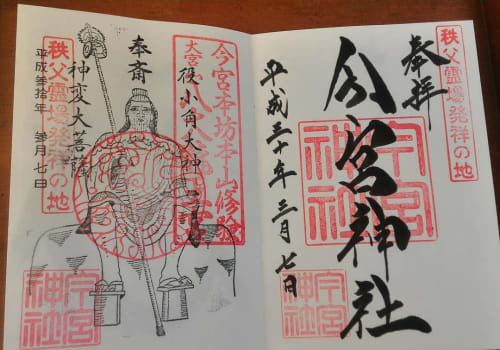 奉拝
秩父霊場発祥の地
今宮神社
平成三十年三月七日
今宮神社
今宮神社
今宮本坊本山修験
奉斎
役小角大神
神変大菩薩
秩父霊場発祥の地
平成参拾年 参月七日
今宮神社